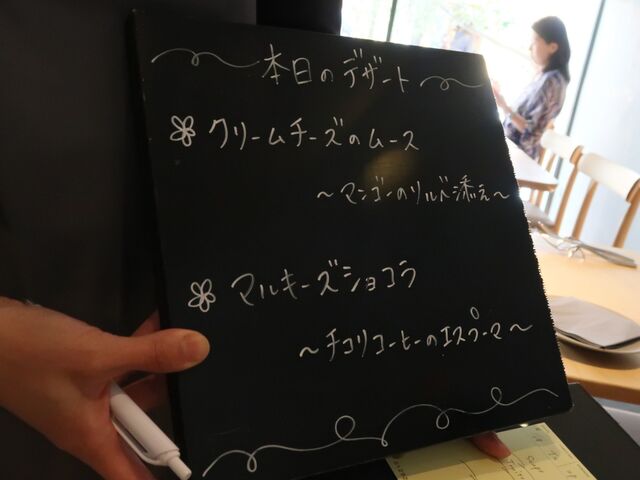 本日のデザート
クリームチーズのムース
～マンゴーのソルベ添え～
マルキーズショコラ
～チコリコーヒーのエスプーマ～